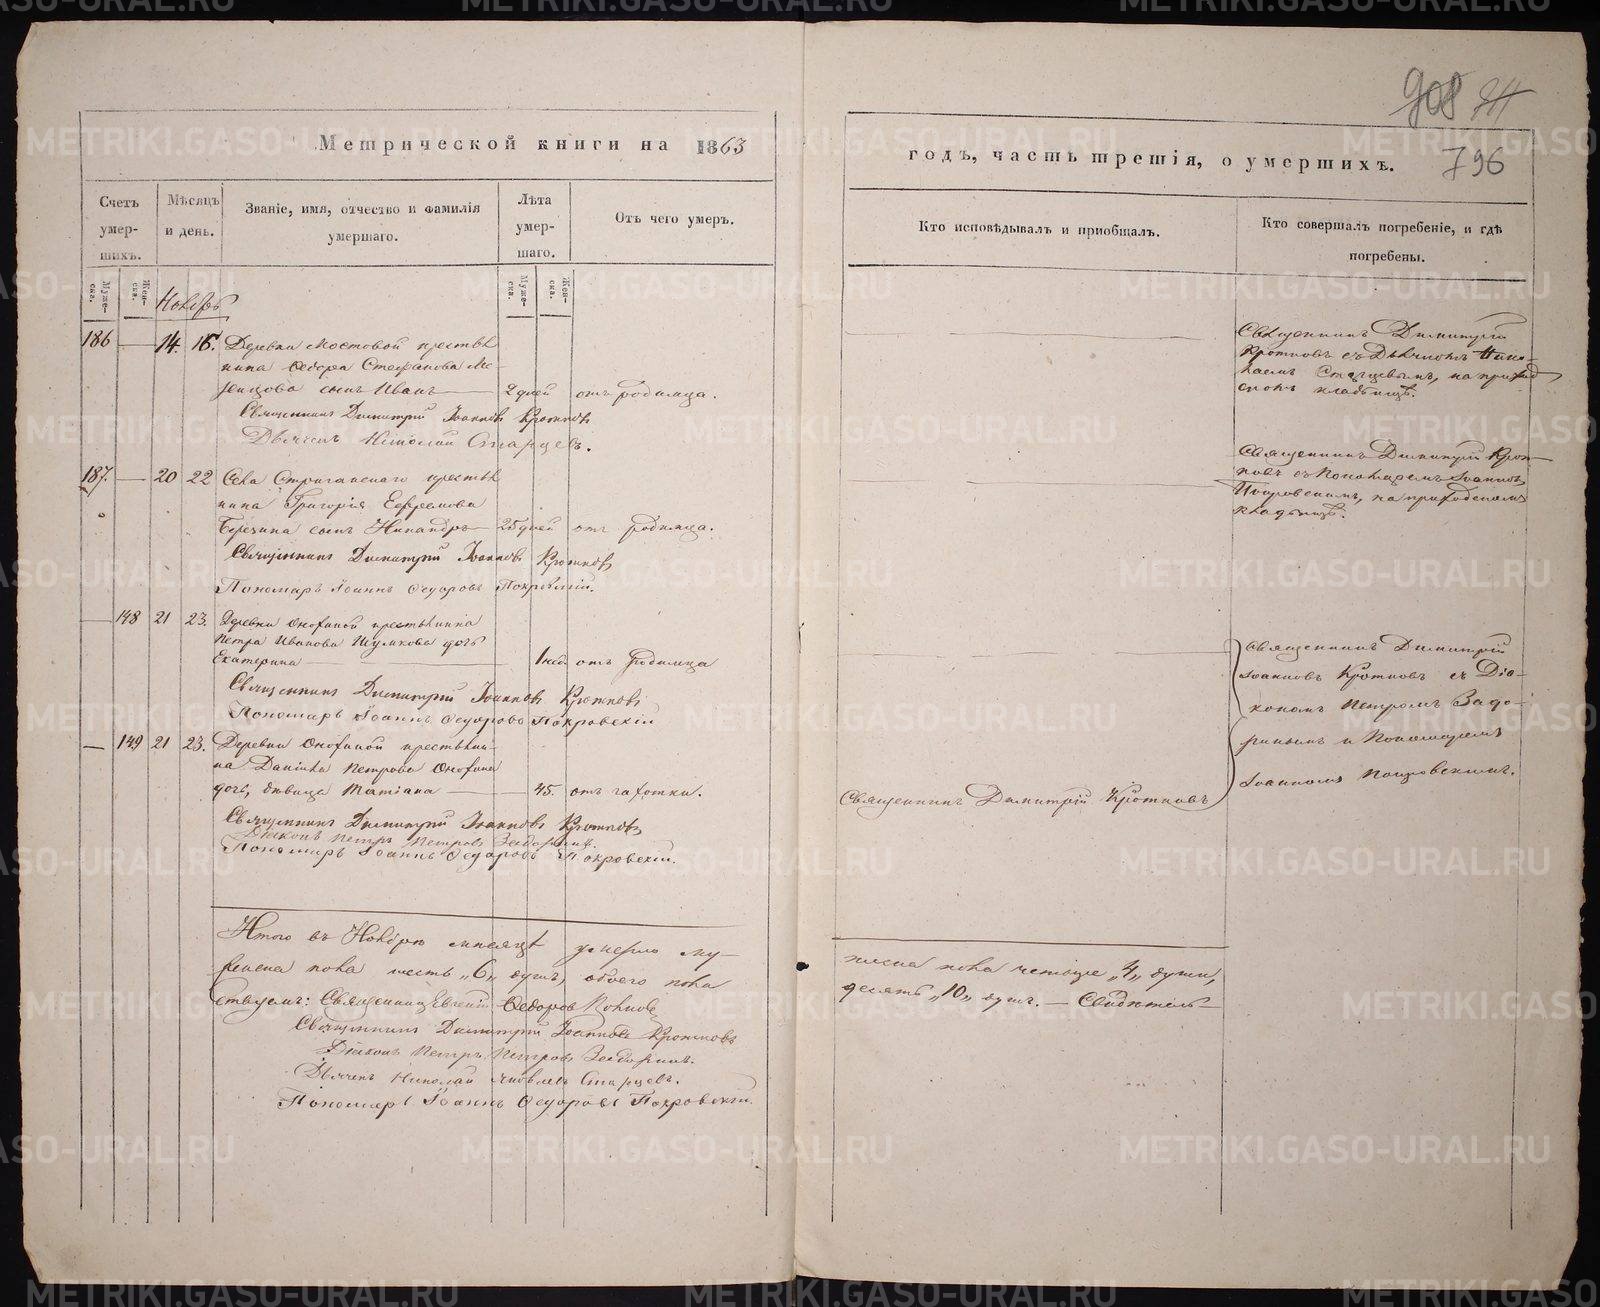 908
796
Метрической книги на 1863
годъ, часть третія, о умершихъ.
Счетъ умер-
шихъ.
Мѣсяцъ
и день.
Званіе, имя, отчество и фамилія
умершаго.
Лѣта
умер-
шаго.
Отъ чего умеръ.
Кто исповѣдывалъ и пріобщалъ.
Кто совершалъ погребеніе, и гдѣ
погребены.
Муже-
ска.
Жен-
ска.
Муже-
ска.
Жен-
ска.
Ноябрь
186 14. 16. Деревни Мостовой крестья
нина Ѳедора Стефанова
сынъ Иванъ 2 дней отъ родимца.
Священникъ Димитрій Іоанновъ Кротковъ
Дьячекъ Николай Старцевъ.
Священникъ Димитрій
Кротковъ съ Дьячкомъ Нико-
лаемъ Старцевымъ, на приход
скомъ кладбищѣ.
187. 20 22 Села Стриганскаго крестья
нина Григорія Ефремова
Березина сынъ Никандръ 25 дней отъ родимца.
Священникъ Димитрій Іоанновъ Кротковъ
Пономарь Іоаннъ Ѳедоровъ Покровскій.
Священникъ Димитрій Крот-
ковъ съ Пономаремъ Іоанномъ
Покровскимъ, на приходскомъ
кладбищѣ.
148 21 23. Деревни крестьянина
Петра Иванова Шумкова дочь
Екатерина 1 нед. отъ родимца
Священникъ Димитрій Іоанновъ Кротковъ
Пономарь Іоаннъ Ѳедоровъ Покровскій
149 21 23. Деревни крестьяни-
на Даниила Петрова
дочь, дѣвица Татіана 45. отъ чахотки.
Священникъ Димитрій Іоанновъ Кротковъ
Діаконъ Петръ Петровъ Задоринъ.
Пономарь Іоаннъ Ѳедоровъ Покровскій.
Священникъ Димитрій Кротковъ
Священникъ Димитрій
Іоанновъ Кротковъ съ Діа-
кономъ Петромъ Задо-
ринымъ и Пономаремъ
Іоанномъ Покровскимъ.
Итого въ Ноябрѣ мѣсяцѣ умерло му-
жеска пола шесть „6„ душъ, обоего пола
ствуемъ: Священникъ Евгеній Ѳедоровъ
Священникъ Димитрій Іоанновъ Кротковъ
Діаконъ Петръ Петровъ Задоринъ.
Дьячекъ Николай Яковлевъ Старцевъ.
Пономарь Іоаннъ Ѳедоровъ Покровскій.
женска пола четыре „4„ души,
десять „10„ душъ. — Свидѣтель-
METRIKI.GASO-URAL.RU